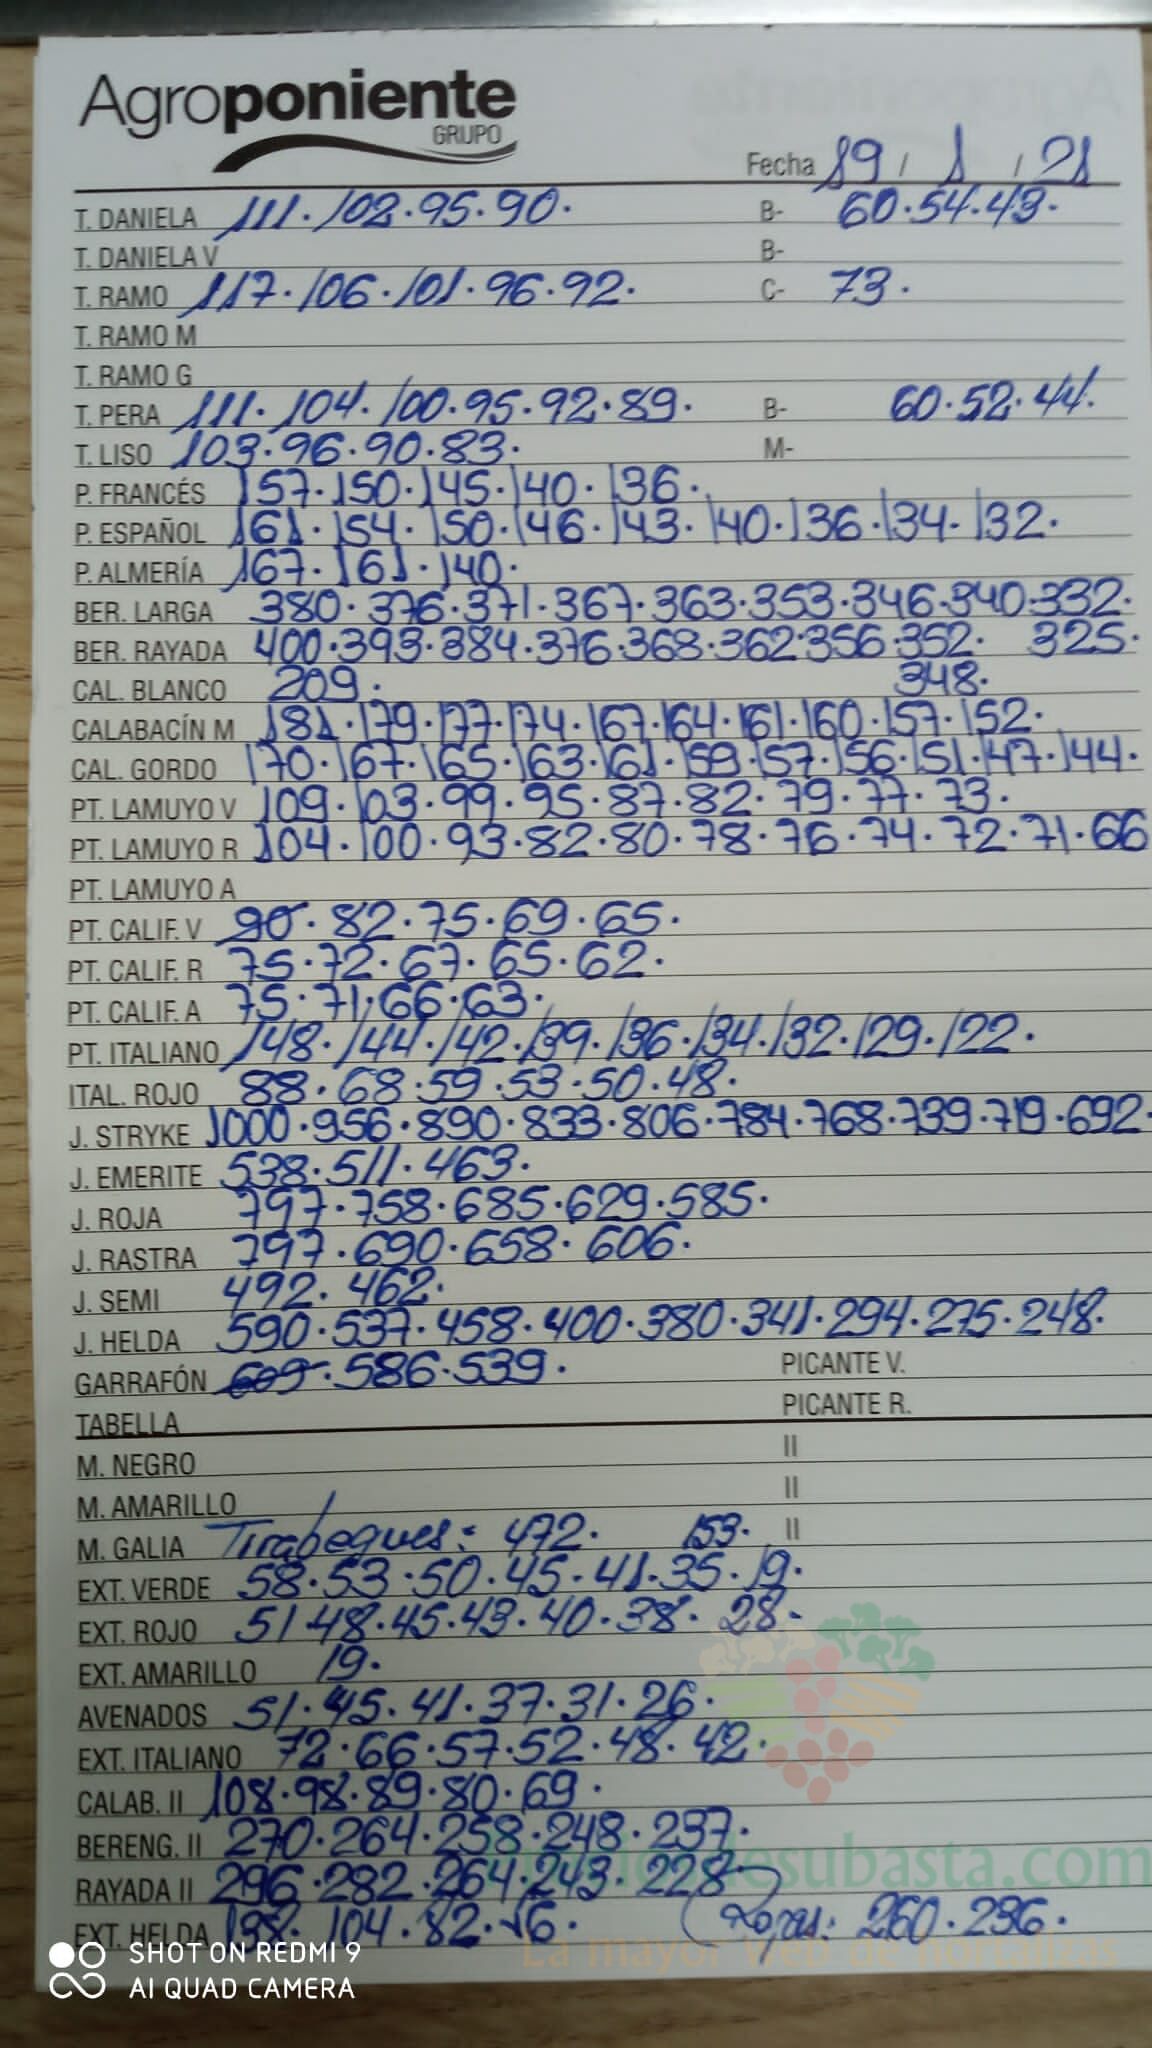 Agroponiente
GRUPO
Fecha 19 / 1 / 21
T. DANIELA 111. 102. 95. 90. B- 60. 54. 43.
T. DANIELA V B-
T. RAMO 117. 106. 101. 96. 92. C- 73.
T. RAMO M
T. RAMO G
T. PERA 111. 104. 100. 95. 92. 89. B- 60. 52. 44.
T. LISO 103. 96. 90. 83. M-
P. FRANCÉS 157. 150. 145. 140. 136.
P. ESPAÑOL 161. 154. 150. 146. 143. 140. 136. 134. 132.
P. ALMERÍA 167. 161. 140.
BER. LARGA 380. 376. 371. 367. 363. 353. 346. 340. 332.
BER. RAYADA 400. 393. 384. 376. 368. 362. 356. 352. 325.
CAL. BLANCO 209. 348.
CALABACÍN M 181. 179. 177. 174. 167. 164. 161. 160. 157. 152.
CAL. GORDO 170. 167. 165. 163. 161. 159. 157. 156. 151. 147. 144.
PT. LAMUYO V 109. 103. 99. 95. 87. 82. 79. 77. 73.
PT. LAMUYO R 104. 100. 93. 82. 80. 78. 76. 74. 72. 71. 66
PT. LAMUYO A
PT. CALIF. V 90. 82. 75. 69. 65.
PT. CALIF. R 75. 72. 67. 65. 62.
PT. CALIF. A 75. 71. 66. 63.
PT. ITALIANO 148. 144. 142. 139. 136. 134. 132. 129. 122.
ITAL. ROJO 88. 68. 59. 53. 50. 48.
J. STRYKE 1000. 956. 890. 833. 806. 784. 768. 739. 719. 692.
J. EMERITE 538. 511. 463.
J. ROJA 797. 758. 685. 629. 585.
J. RASTRA 797. 690. 658. 606.
J. SEMI 492. 462.
J. HELDA 590. 537. 458. 400. 380. 341. 294. 275. 248.
GARRAFÓN 609. 586. 539. PICANTE V.
TABELLA PICANTE R.
M. NEGRO II
M. AMARILLO II
M. GALIA Tirabeques: 472. 153. II
EXT. VERDE 58. 53. 50. 45. 41. 35. 19.
EXT. ROJO 51. 48. 45. 43. 40. 38. 28.
EXT. AMARILLO 19.
AVENADOS 51. 45. 41. 37. 31. 26.
EXT. ITALIANO 72. 66. 57. 52. 48. 42.
CALAB. II 108. 98. 89. 80. 69.
BERENG. II 270. 264. 258. 248. 237.
RAYADA II 296. 282. 264. 243. 228
EXT. HELDA 104. 82. 260. 236.
desubasta.com
La mayor web de hortalizas
SHOT ON REDMI 9
AI QUAD CAMERA